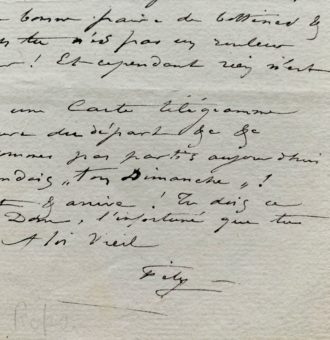 bonne paire de bottines &
tu n'es pas un rouleur
! Et cependant rien n'est
une Carte télégramme
du départ &c &c
sommes pas partis aujourd'hui
"ton Dimanche" !
& arrive ! Tu dois ce
Dom, l'infortuné que tu
A toi Vieil